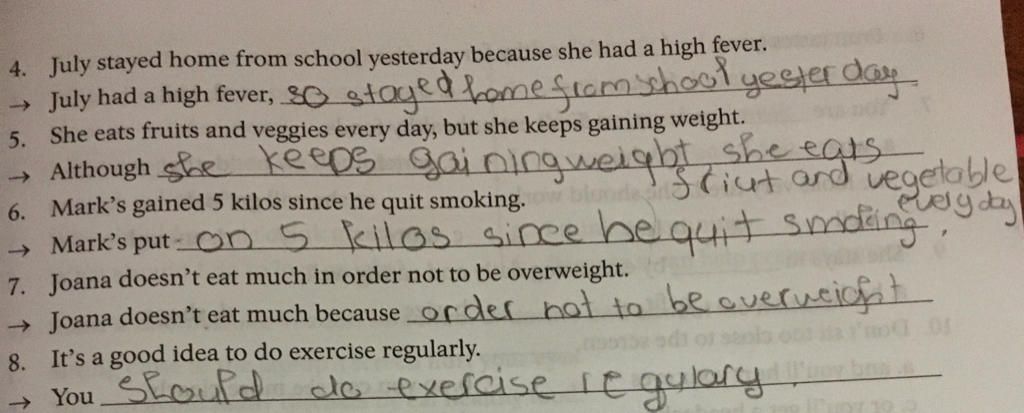 4. July stayed home from school yesterday because she had a high fever.
→ July had a high fever, so stayed home from school yesterday.
5. She eats fruits and veggies every day, but she keeps gaining weight.
→ Although she keeps gaining weight she eats
friut and vegetable
every day
6. Mark's gained 5 kilos since he quit smoking.
→ Mark's put on 5 kilos since he quit smoking.
7. Joana doesn't eat much in order not to be overweight.
→ Joana doesn't eat much because order not to be overweight
8. It's a good idea to do exercise regularly.
→ You should do exercise regulary.